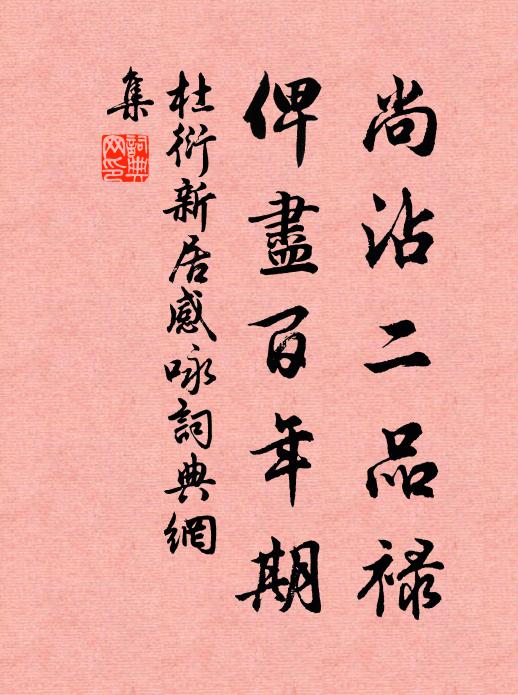 尚沾二品祿
俾盡百年期
杜衍新居感咏詞典網
集
詞典網印